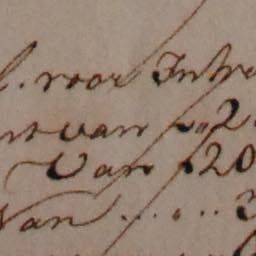 l. voor Intre
nt van f„ 2.
Van f 20
Van . . . . . 3